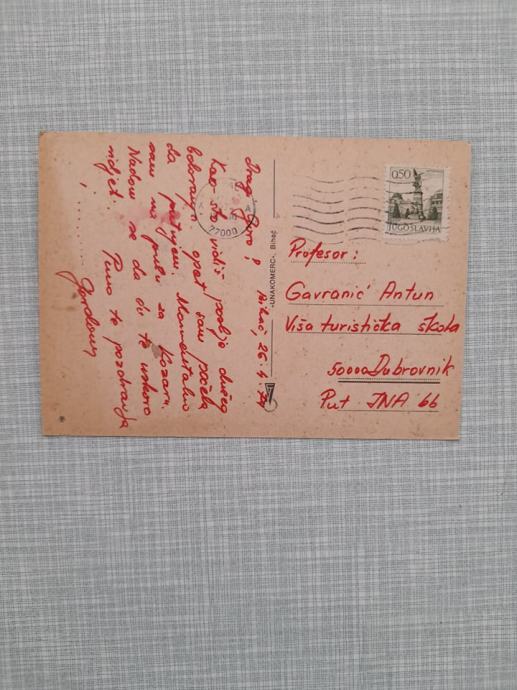 Bihać, 26.4.74
Kao što vidiš poslije dužeg
bolovanja opet sam počela
da putujem. Momentalno
sam na putu za Kozaru.
Nadam se da ću te uskoro
vidjet. Puno te pozdravlja
»UNAKOMERC«, Bihać
77000
0,50
JUGOSLAVIJA
Profesor:
Gavranić Antun
Viša turistička škola
50000 Dubrovnik
Put JNA 66